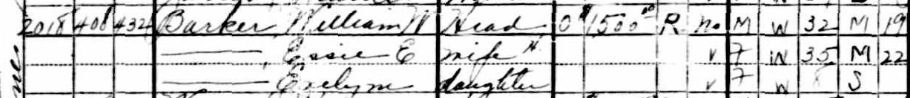 2018 408 432 Barker, William W Head O 1500 R No M W 32 M 19
Essie E wife H v F W 35 M 22
Evelyn daughter v F W S